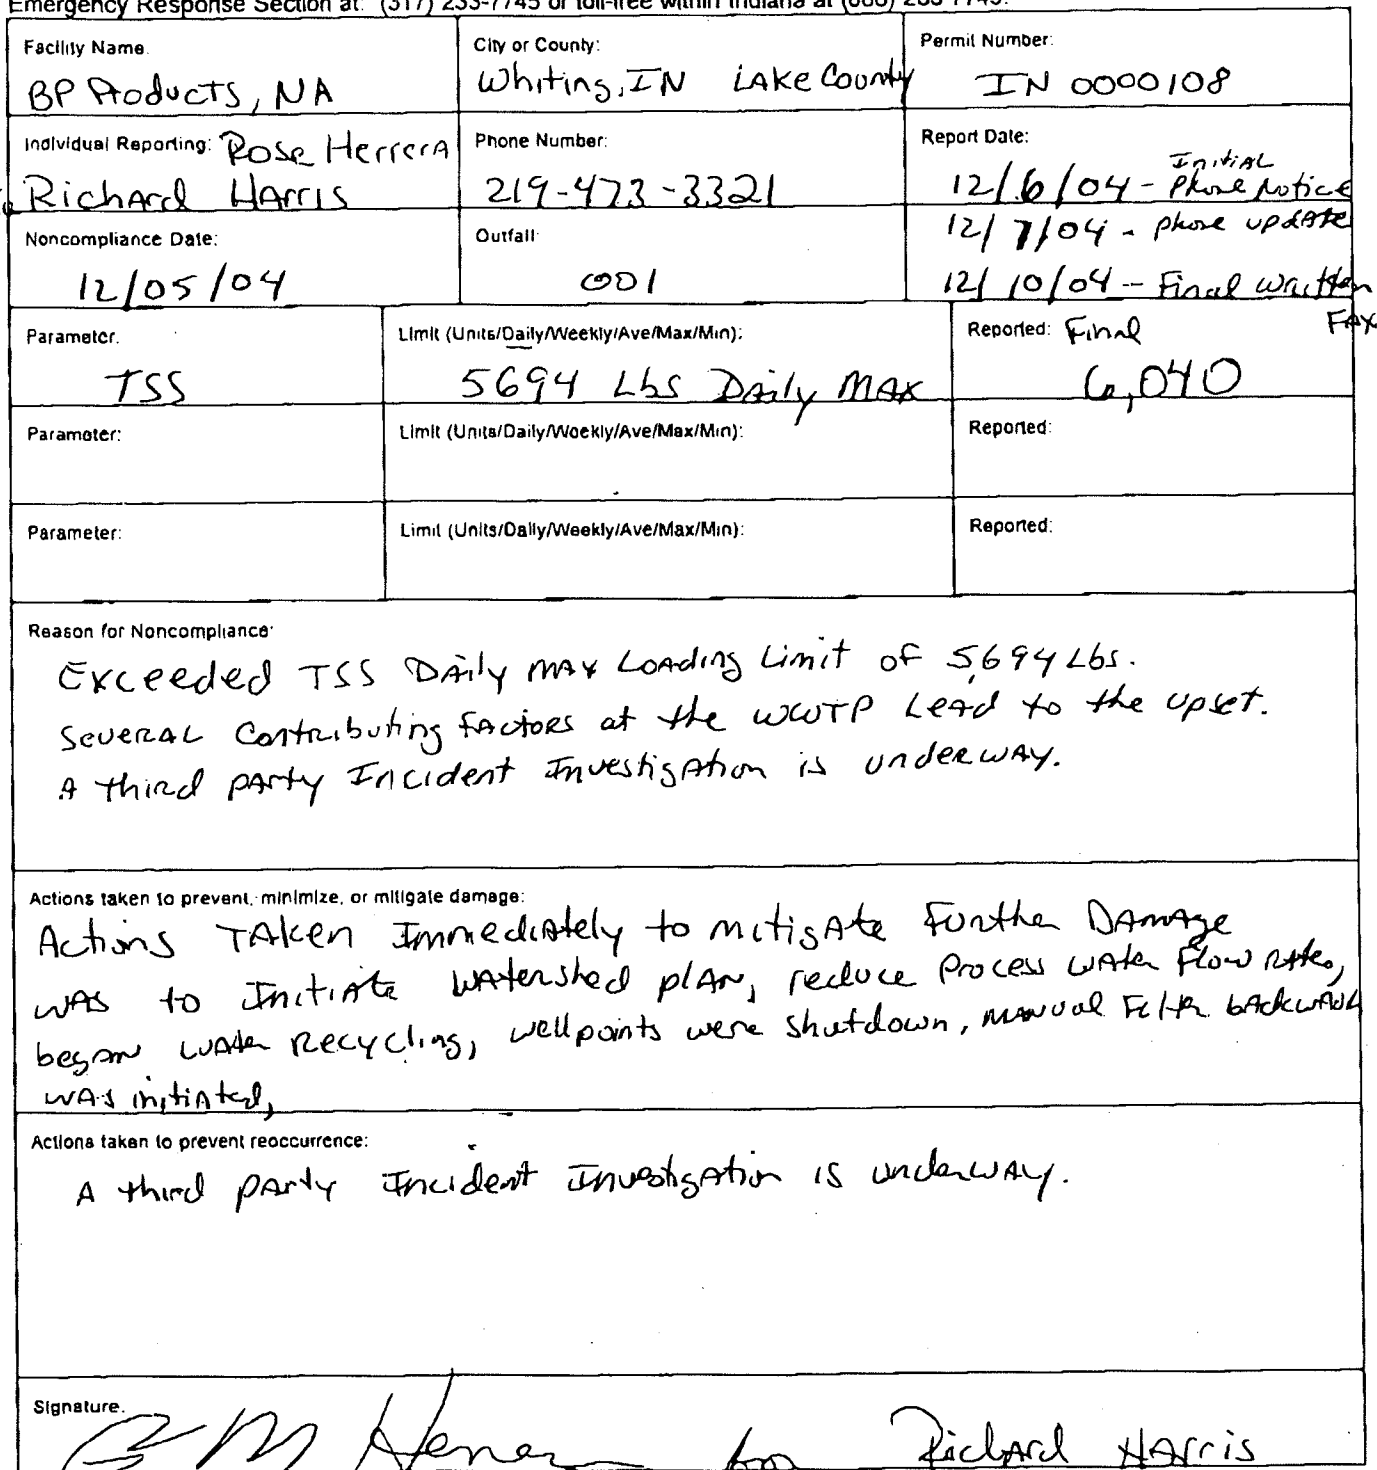 Emergency Response Section at: (317) 233-7745 or toll-free within Indiana at (888) 233-7745.
Facility Name.
BP Products, NA
City or County:
Whiting, IN Lake County
Permit Number:
IN 0000108
Individual Reporting: Rose Herrera
Richard Harris
Phone Number:
219-473-3321
Report Date:
Initial
12/6/04 - Phone Notice
12/7/04 - phone update
12/10/04 - Final written
FAX
Noncompliance Date:
12/05/04
Outfall
001
Parameter.
TSS
Limit (Units/Daily/Weekly/Ave/Max/Min):
5694 Lbs Daily Max
Reported: Final
6,040
Parameter:
Limit (Units/Daily/Weekly/Ave/Max/Min):
Reported:
Parameter:
Limit (Units/Daily/Weekly/Ave/Max/Min):
Reported:
Reason for Noncompliance:
Exceeded TSS Daily max Loading Limit of 5,694 Lbs.
Several Contributing factors at the WWTP Lead to the upset.
A third party Incident Investigation is underway.
Actions taken to prevent, minimize, or mitigate damage:
Actions Taken Immediately to mitigate Further Damage
was to Initiate watershed plan, reduce Process water Flow rates,
began water Recycling, wellpoints were shutdown, manual Filter backwash
was initiated,
Actions taken to prevent reoccurrence:
A third party Incident Investigation is underway.
Signature.
Herrera for Richard Harris